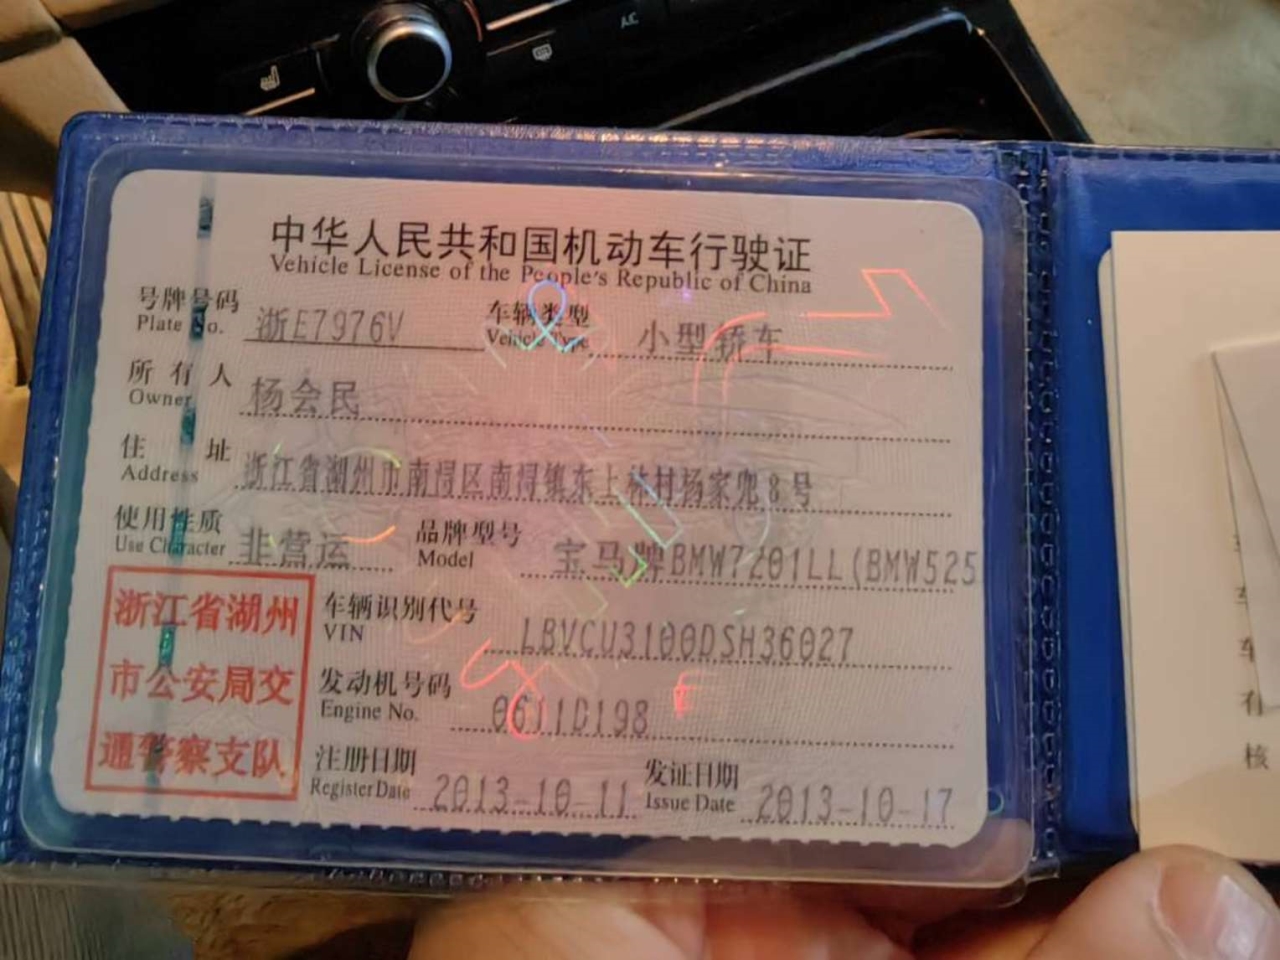 A/C
中华人民共和国机动车行驶证
Vehicle License of the People's Republic of China
号牌号码 浙E7976V 车辆类型 小型轿车
Plate No. Vehicle Type
所有人 杨会民
Owner
住址 浙江省湖州市南浔区南浔镇东上林村杨家兜8号
Address
使用性质 非营运 品牌型号 宝马牌BMW7201LL(BMW525
Use Character Model
浙江省湖州
市公安局交
通警察支队
车辆识别代号 LBVCU3100DSH36027
VIN
发动机号码 0611D198
Engine No.
注册日期 2013-10-11 发证日期 2013-10-17
Register Date Issue Date
车
有
核